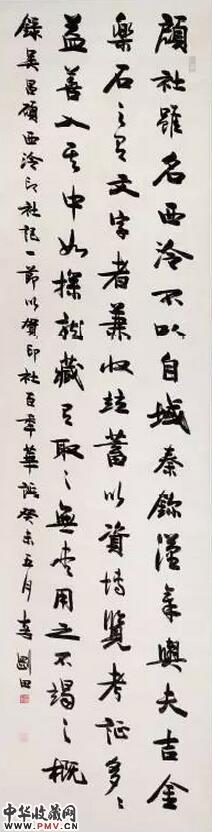 顧社雖名西泠不以自域秦鉨漢章與夫吉金
樂石之有文字者兼收竝蓄以資博覽考证多〻
益善入其中如探龍藏有取之無尽用之不竭之概
錄吴昌碩西泠印社記一節以賀印社百年華诞癸未五月
中华收藏网
www.PMV.CN